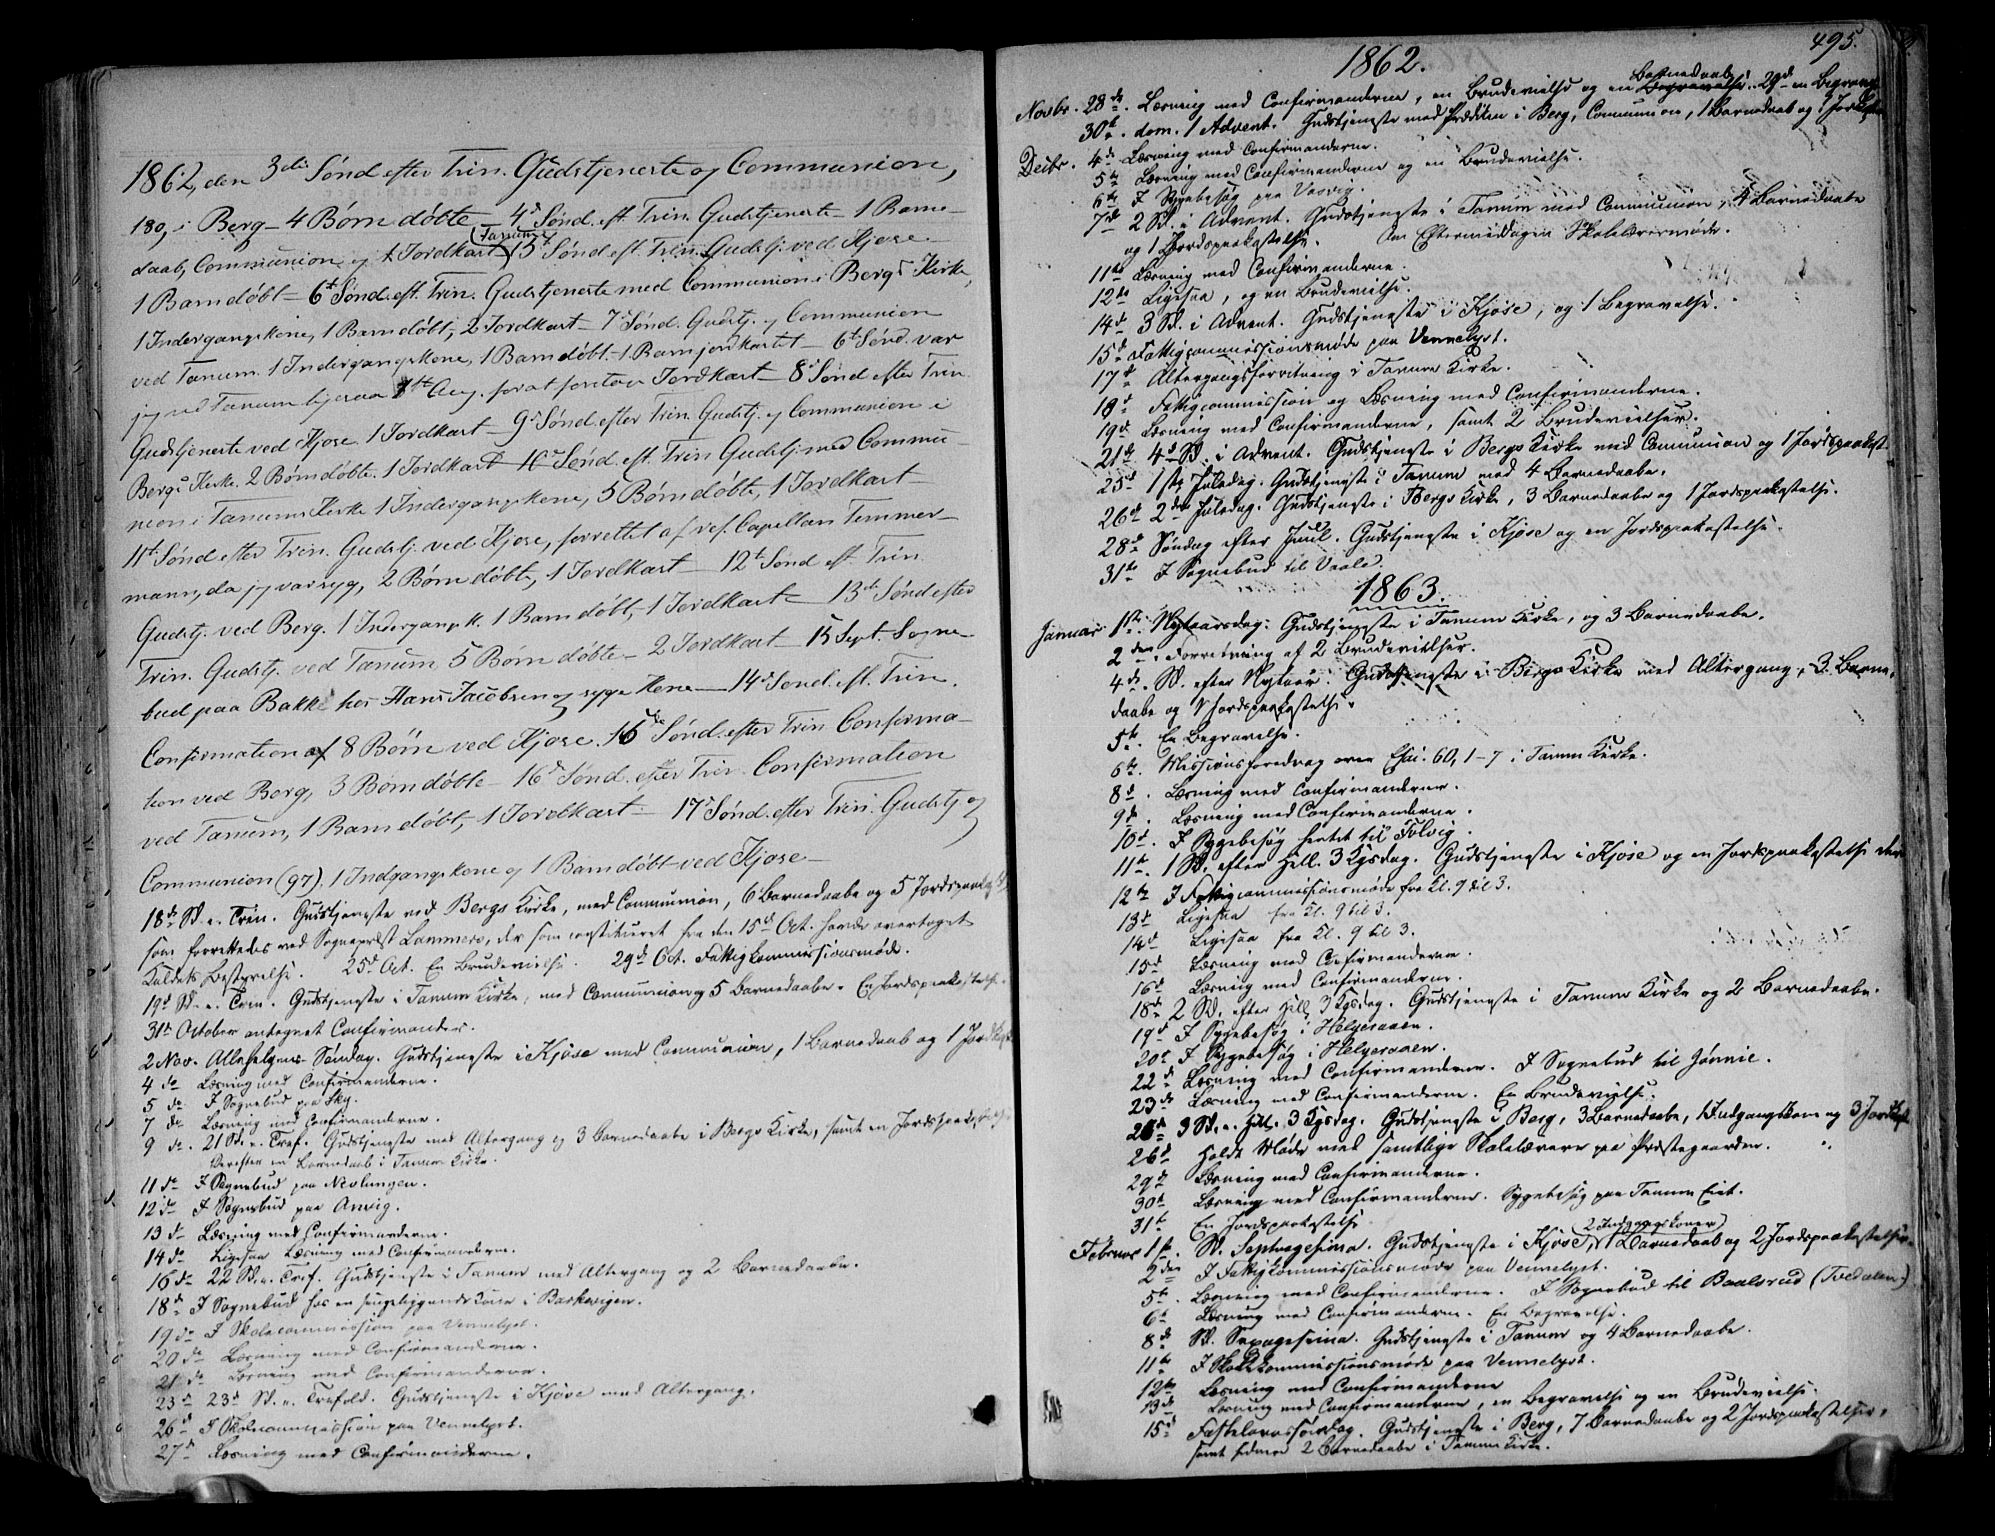 1862, den 3die Sønd efter Trin. Gudstjeneste og Communion,
180, i Berg – 4 Børn døbte – 4d Sønd. eft. Trin. Gudstjeneste – 1 Barne-
daab, Communion og 1 Jordkast (Tanum) – 5t Sønd eft. Trin. Gudstj. ved Kjose –
1 Barn døbt – 6t Sønd. eft. Trin. Gudstjeneste med Communion i Bergs Kirke,
1 Indergangskone, 1 Barn døbt, 2 Jordkast – 7d Sønd. Gudstj. og Communion
ved Tanum. 1 Indergangskone, 1 Barn døbt – 1 Barn jordkastet – 6t Sønd. var
jeg ved Tanum Aug. for at foretage Jordkast – 8d Sønd efter Trin
Gudstjeneste ved Kjose 1 Jordkast – 9d Sønd. efter Trin. Gudstj. og Communion i
Bergs Kirke. 2 Børn døbte. 1 Jordkast – 10d Sønd. eft. Trin Gudstj. med Commu-
nion i Tanums Kirke 1 Indergangskone, 5 Børn døbte, 1 Jordkast –
11te Sønd efter Trin. Gudstj. ved Kjose, forrettet af res. Capellan Temmer-
mann, da jeg var syg, 2 Børn døbte, 1 Jordkast – 12t Sønd eft. Trin.
Gudstj. ved Berg. 1 Indergangsk. 1 Barn døbt, 1 Jordkast – 13de Sønd efter
Trin. Gudstj. ved Tanum 5 Børn døbte – 2 Jordkast – 15 Sept. Sogne-
bud paa Bakke hos Hans Jacobsen og syge Kone – 14d Sønd. eft. Trin.
Confirmation af 8 Børn ved Kjose. 15de Sønd. efter Trin Confirma-
tion ved Berg, 3 Børn døbte – 16d Sønd. efter Trin. Confirmation
ved Tanum, 1 Barn døbt, 1 Jordkast – 17d Sønd. efter Trin. Gudstj og
Communion (97). 1 Indgangskone og 1 Barn døbt ved Kjose –
18de Sd. e. Trin. Gudstjeneste ved Bergs Kirke, med Communion, 6 Barnedaabe og 5 Jordspaakast.
som forrettedes ved Sogneprest Lammers, der som constitueret fra den 15de Oct. havde overtaget
Kaldets Bestyrelse. 25de Oct. En Brudevielse. 29de Oct. Fattigkommissionsmøde.
19d Sd. e. Trin. Gudstjeneste i Tanum Kirke, med Communion og 5 Barnedaabe. En Jordspaakastelse.
31te October antegnet Confirmander.
2 Nov. Allehelgens Søndag. Gudstjeneste i Kjose med Communion, 1 Barnedaab og 1 Jordkast
4 de Læsning med Confirmanderne.
5 de I Sognebud paa Sky.
7 de Læsning med Confirmanderne.
9 de. 21 Sd. e. Tref. Gudstjeneste med Altergang og 3 Barnedaabe i Bergs Kirke, samt en Jordspaakastelse
Derefter en Barnedaab i Tanum Kirke.
11 de I Sognebud paa Nevlungen.
12 de I Sognebud paa
13 de Læsning med Confirmanderne.
14 de Ligesaa Læsning med Confirmanderne.
16 de 22 Sd. e. Tref. Gudstjeneste i Tanum med Altergang og 2 Barnedaabe.
18 de I Sognebud hos en sengeliggende Kone i Barkevigen.
19 de I Skolecommission paa Vennelyst.
20 de Læsning med Confirmanderne.
21 de Læsning med Confirmanderne.
23 de 23d Sd. e. Trefold. Gudstjeneste i Kjose med Altergang.
26 de I Skolecommission paa Vennelyst.
27 de Læsning med Confirmanderne.
495.
1862.
Novbr. 28de. Læsning med Confirmanderne, en Brudevielse og en Barnedaab. 29de en Begravelse
30te. dom. 1 Advent. Gudstjeneste med Prædiken i Berg, Communion, 1 Barnedaab og 1 Jordkast
Decbr. 4de Læsning med Confirmanderne.
5te Læsning med Confirmanderne og en Brudevielse.
6te I Sygebesøg paa
7de 2 Sd. i Advent. Gudstjeneste i Tanum med Communion, 4 Barnedaabe
og 1 Jordspaakastelse. Om Eftermiddagen Skolelærermøde.
11te Læsning med Confirmanderne.
12te Ligesaa, og en Brudevielse.
14de 3 Sd. i Advent. Gudstjeneste i Kjose, og 1 Begravelse.
15de Fattigcommissionsmøde paa Vennelyst.
17de Altergangsforretning i Tanum Kirke.
18de Fattigcommission og Læsning med Confirmanderne.
19de Læsning med Confirmanderne, samt 2 Brudevielser.
21de 4de Sd. i Advent. Gudstjeneste i Bergs Kirke med Communion og 1 Jordspaakast.
25de 1ste Juledag. Gudstjeneste i Tanum med 4 Barnedaabe.
26de 2den Juledag. Gudstjeneste i Bergs Kirke, 3 Barnedaabe og 1 Jordspaakastelse.
28de Søndag efter Juul. Gudstjeneste i Kjose og en Jordspaakastelse.
31te I Sognebud til Vaale.
1863.
Januar 1ste. Nytaarsdag. Gudstjeneste i Tanum Kirke, og 3 Barnedaabe.
2den. Forretning af 2 Brudevielser.
4de. Sd. efter Nytaar. Gudstjeneste i Bergs Kirke med Altergang, 3 Barne-
daabe og 1 Jordspaakastelse.
5te. En Begravelse.
6te. Missionsforedrag over Esai. 60, 1-7 i Tanum Kirke.
8de. Læsning med Confirmanderne.
9de. Læsning med Confirmanderne.
10de. I Sygebesøg hentet til Folvig.
11te. 1 Sd. efter Hell. 3 Kgsdag. Gudstjeneste i Kjose og en Jordspaakastelse
12te I Fattigcommissionsmøde fra Kl. 9 til 3.
13de Ligesaa fra Kl. 9 til 3.
14de Ligesaa fra Kl. 9 til 3.
15de Læsning med Confirmanderne.
16de Læsning med Confirmanderne.
18de 2 Sd. efter Hell. 3 Kgsdag. Gudstjeneste i Tanum Kirke og 2 Barnedaabe.
19de I Sygebesøg i Helgeraaen.
20de I Sygebesøg i Helgeraaen.
22de Læsning med Confirmanderne. I Sognebud til Jønnie.
23de Læsning med Confirmanderne. En Brudevielse.
25de 3 Sd. e. Hll. 3 Kgsdag. Gudstjeneste i Berg, 3 Barnedaabe, 1 Indgangskone og 3 Jordkast
26de Holdt Møde med samtlige Skolelærere paa Præstegaarden.
29de Læsning med Confirmanderne.
30te Læsning med Confirmanderne. Sygebesøg paa Tanum Eiet.
31te En Jordspaakastelse
Februar 1ste. Sd. Septuagesima. Gudstjeneste i Kjose, (2 Indgangskoner) 1 Barnedaab og 2 Jordspaakastelser.
2den I Fattigkommissionsmøde paa Vennelyst.
5te. Læsning med Confirmanderne. I Sognebud til Baalsrud (Tvedalen)
6te Læsning med Confirmanderne. En Begravelse.
8de Sd. Sexagesima. Gudstjeneste i Tanum og 4 Barnedaabe.
11te I Skolekommissionsmøde paa Vennelyst.
12te Læsning med Confirmanderne
13de Læsning med Confirmanderne, en Begravelse og en Brudevielse.
15de Fastelavnssøndag. Gudstjeneste i Berg, 7 Barnedaabe og 2 Jordspaakastelser,
samt 2 Barnedaabe i Tanum Kirke.